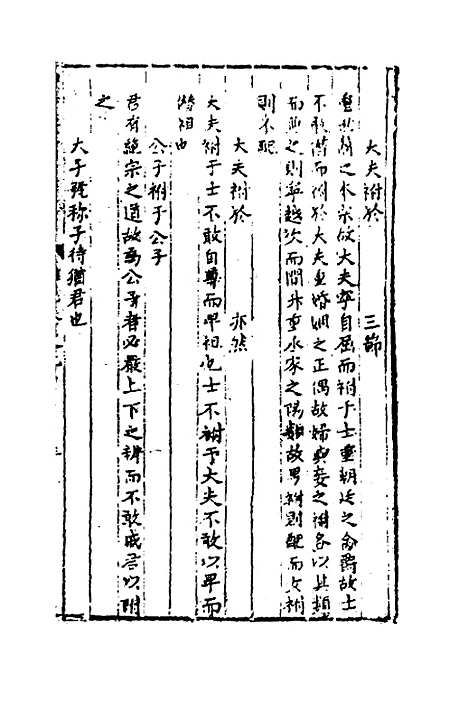 大夫祔於　三節
重其之本宗故大夫寧自屈而祔于士重朝廷之爵故士
不敢僭而祔於大夫重婚姻之正偶故婦與妾之祔各以其類
而無之則寧越次而間升重水家之陽類故男祔則配而女祔
則不配
大夫祔於　亦然
大夫祔于士不敢自尊而卑祖也士不祔于大夫不敢以卑而
僭祖也
公子祔于公子
君有絕宗之道故為公子者必嚴上下之辨而不敢戚君以附
之
大子號称子待猶君也